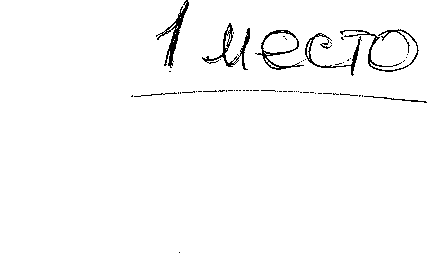 1 место